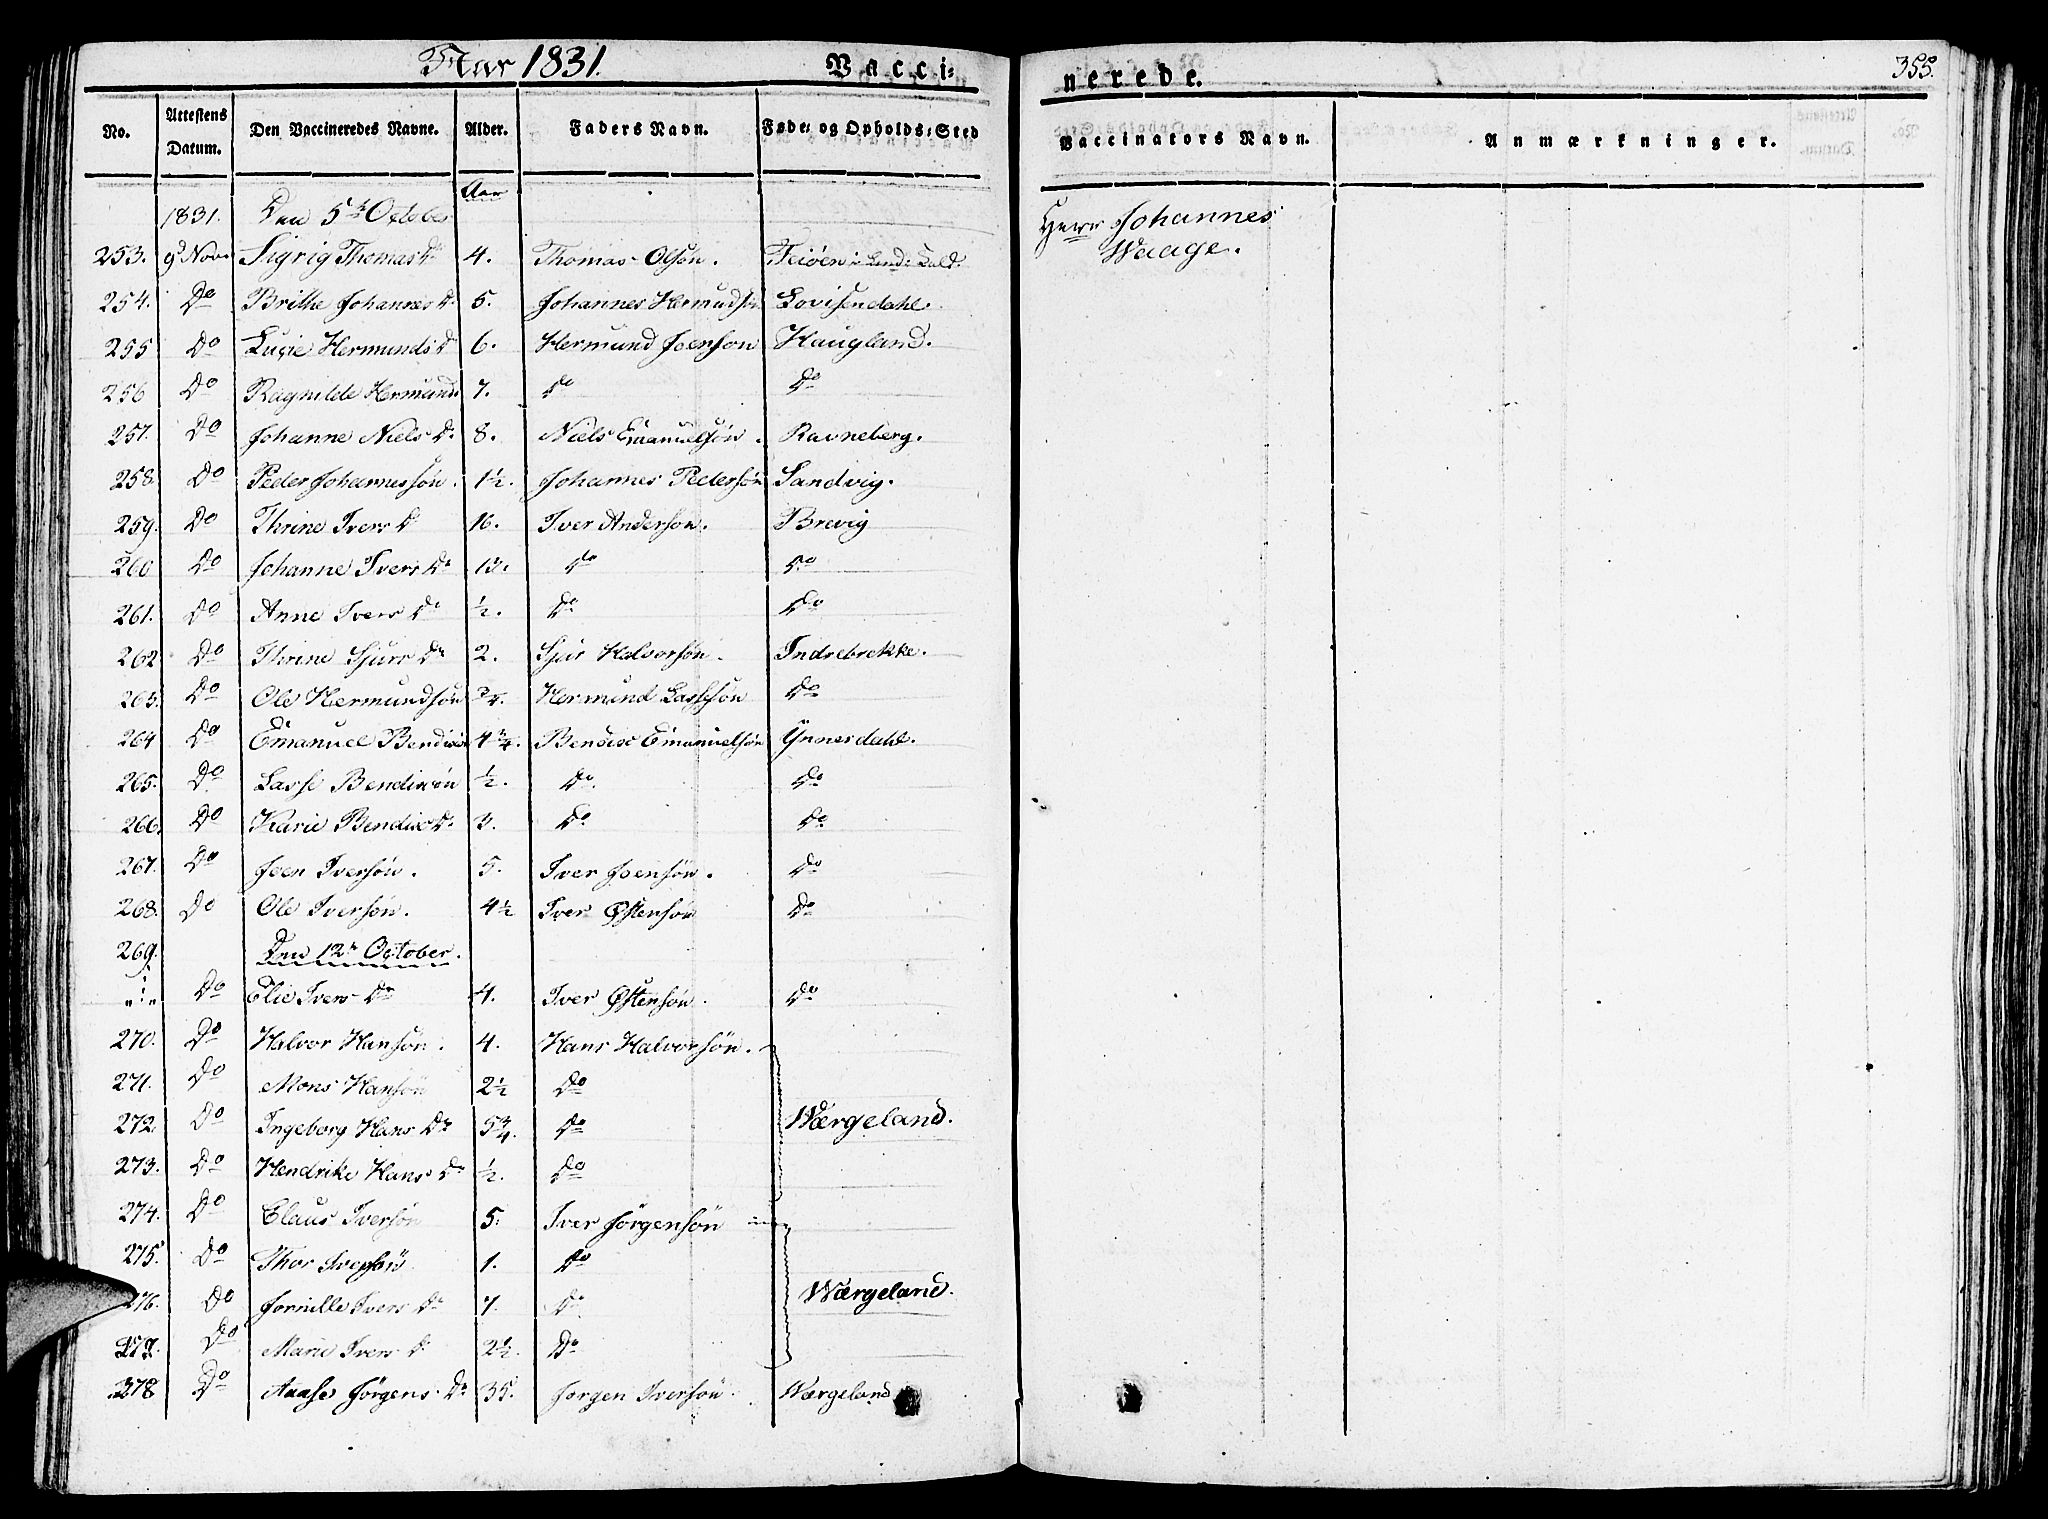 Aar 1831. Vacci-
nerede. 355.
No. Attestens Datum. Den Vaccineredes Navne. Alder. Faders Navn. Føde- og Opholds-Sted Vaccinators Navn. Anmærkninger.
Aar
1831. Den 5te October Herr Johannes
253. 9 Nov. Sigrig Thomas Dr 4. Thomas Olsøn. Teiøen i Lund: Kald. Waage.
254. Do Brithe Johannes Dr 5. Johannes Hermundsøn Lovisendahl.
255 Do Lucie Hermunds Dr 6. Hermund Joenson Haugland.
256 Do Ragnilde Hermunds 7. Do Do
257. Do Johanne Niels Dr 8. Niels Emanuelsøn. Ravneberg.
258. Do Peder Johannessøn. 1½. Johannes Pedersøn Sandvig.
259. Do Thrine Ivers Dr 16. Iver Anderson. Brevig
260 Do Johanne Ivers Dr 12. Do Do
261. Do Anne Ivers Dr ½. Do Do
262 Do Thrine Sjurs Dr 2. Sjur Halvorsøn. Indrebrekke.
263. Do Ole Hermundsøn ¾. Hermund Lassesøn Do
264 Do Emanuel Bendixs 4¾. Bendix Emanuelsøn Ynnesdahl.
265. Do Lasse Bendixsøn ½. Do. Do
266. Do Karie Bendix Dr 3. Do Do
267. Do Joen Iversøn. 5. Iver Joensøn. Do
268. Do Ole Iversøn. 4½ Iver Østensøn Do
269. Den 12te October.
Do Elie Ivers Dr 4. Iver Østensøn. Do
270. Do Halvor Hansøn. 4. Hans Halvorsøn.
271. Do Mons Hansøn 2½ Do
272. Do Ingeborg Hans Dr 5¾. Do Wærgeland.
273. Do Hendrike Hans Dr ½. Do
274. Do Claus Iversøn 5. Iver Jørgensøn
275. Do Thor Iversøn 1. Do
276. Do Jornille Ivers Dr 7. Do Wærgeland.
277. Do Marie Ivers Dr 2½. Do
278 Do Aase Jørgens Dr 35. Jørgen Iversøn. Wærgeland